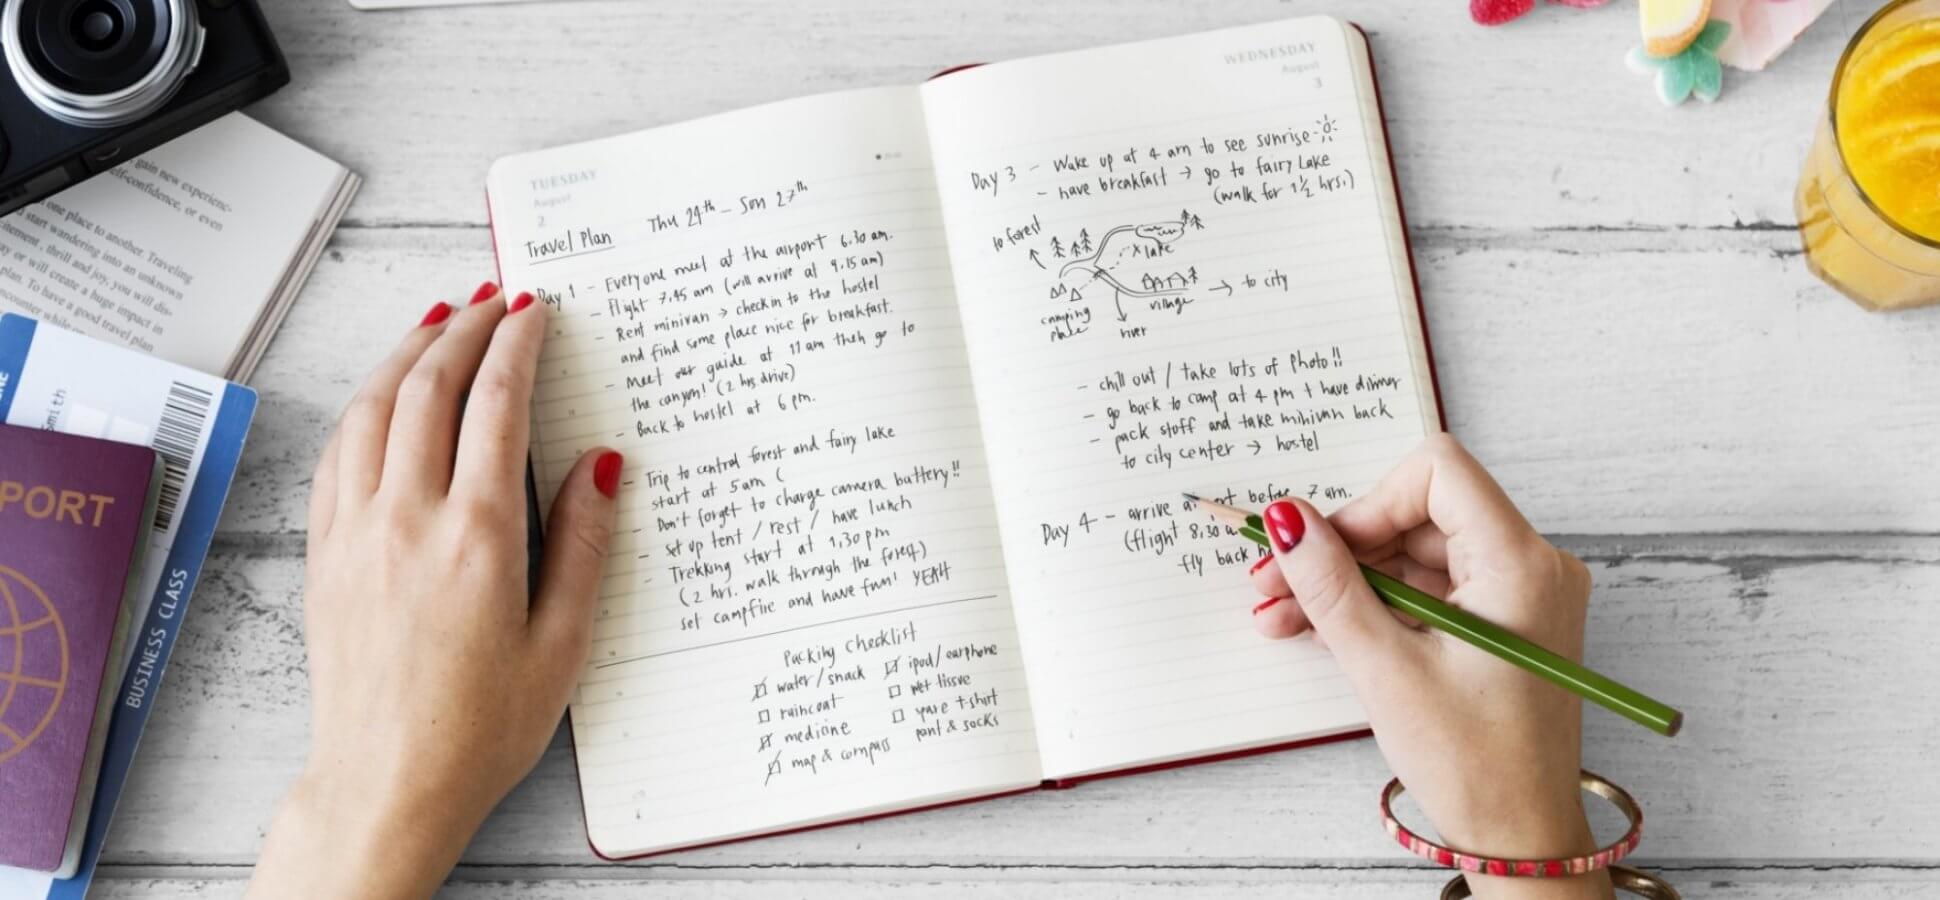 gain new experienc-
elf-confidence, or even
one place to another. Traveling
start wandering into an unknown
citement, thrill and joy, you will dis-
ay or will create a huge impact in
plan. To have a good travel plan
counter while
Smith
PORT
BUSINESS CLASS
TUESDAY
August
2
Thu 24th - Sun 27th
Travel Plan
Day 1 - Everyone meet at the airport 6.30 am.
- Flight 7.45 am (will arrive at 9.15 am)
- Rent minivan → check in to the hostel
and find some place nice for breakfast.
- Meet our guide at 11 am then go to
the canyon! (2 hrs. drive)
- Back to hostel at 6 pm.
- Trip to central forest and fairy lake
start at 5am (
- Don't forget to charge camera battery!!
- set up tent / rest / have lunch
- Trekking start at 1.30 pm
(2 hrs. walk through the forest)
set campfire and have fun! YEAH
Packing Checklist
water/snack
raincoat
medicine
map & compass
ipod/earphone
wet tissue
t-shirt
pant & socks
WEDNESDAY
August
3
Day 3 - Wake up at 4 am to see sunrise
- have breakfast → go to fairy Lake
(walk for 1 1/2 hrs.)
to forest
x lake
camping
place
village
→ to city
river
- chill out / take lots of photo!!
- go back to camp at 4 pm + have dinner
- pack stuff and take minivan back
to city center → hostel
Day 4 - arrive before 7 am.
(flight 8.30
fly back